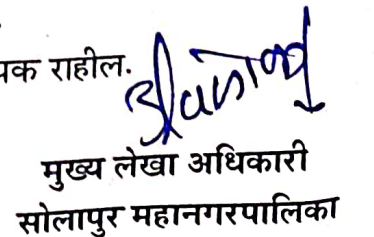 यक राहील.
मुख्य लेखा अधिकारी
सोलापुर महानगरपालिका